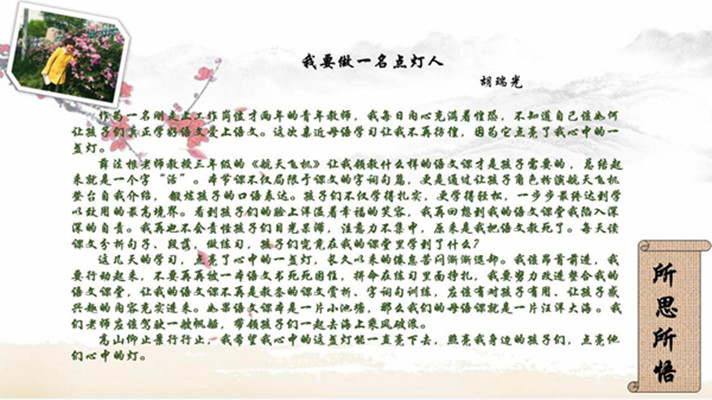 我要做一名点灯人
胡瑞光
作为一名刚走上工作岗位才两年的青年教师，我每日内心充满着惶恐，不知道自己该如何
让孩子们真正学好语文爱上语文。这次亲近母语学习让我不再彷徨，因为它点亮了我心中的一
盏灯。
薛法根老师教授三年级的《航天飞机》让我领教什么样的语文课才是孩子需要的，总结起
来就是一个字“活”。本节课不仅局限于课文的字词句篇，更是通过让孩子角色扮演航天飞机
登台自我介绍，锻炼孩子的口语表达。孩子们不仅学得扎实，更学得轻松，一步步最终达到学
以致用的最高境界。看到孩子们的脸上洋溢着幸福的笑容，我再回想到我的语文课堂我陷入深
深的自责。我再也不会责怪孩子们目光呆滞，注意力不集中，原来是我把语文教死了。每天读
课文分析句子、段落，做练习，孩子们究竟在我的课堂里学到了什么？
这几天的学习，点亮了心中的一盏灯，长久以来的倦怠苦闷渐渐退却。我该昂首前进，我
要行动起来，不要再再被一本语文书死死困住，拼命在练习里面挣扎，我要努力改进整合我的
语文课堂，让我的语文课不再是教参的课文赏析、字词句训练，应该有对孩子有用、让孩子感
兴趣的内容充实进来。如果语文课本是一片小池塘，那么我们的母语课就是一片汪洋大海。我
们老师应该驾驶一艘帆船，带领孩子们一起去海上乘风破浪。
高山仰止景行行止，我希望我心中的这盏灯能一直亮下去，照亮我身边的孩子们，点亮他
们心中的灯。
所思所悟